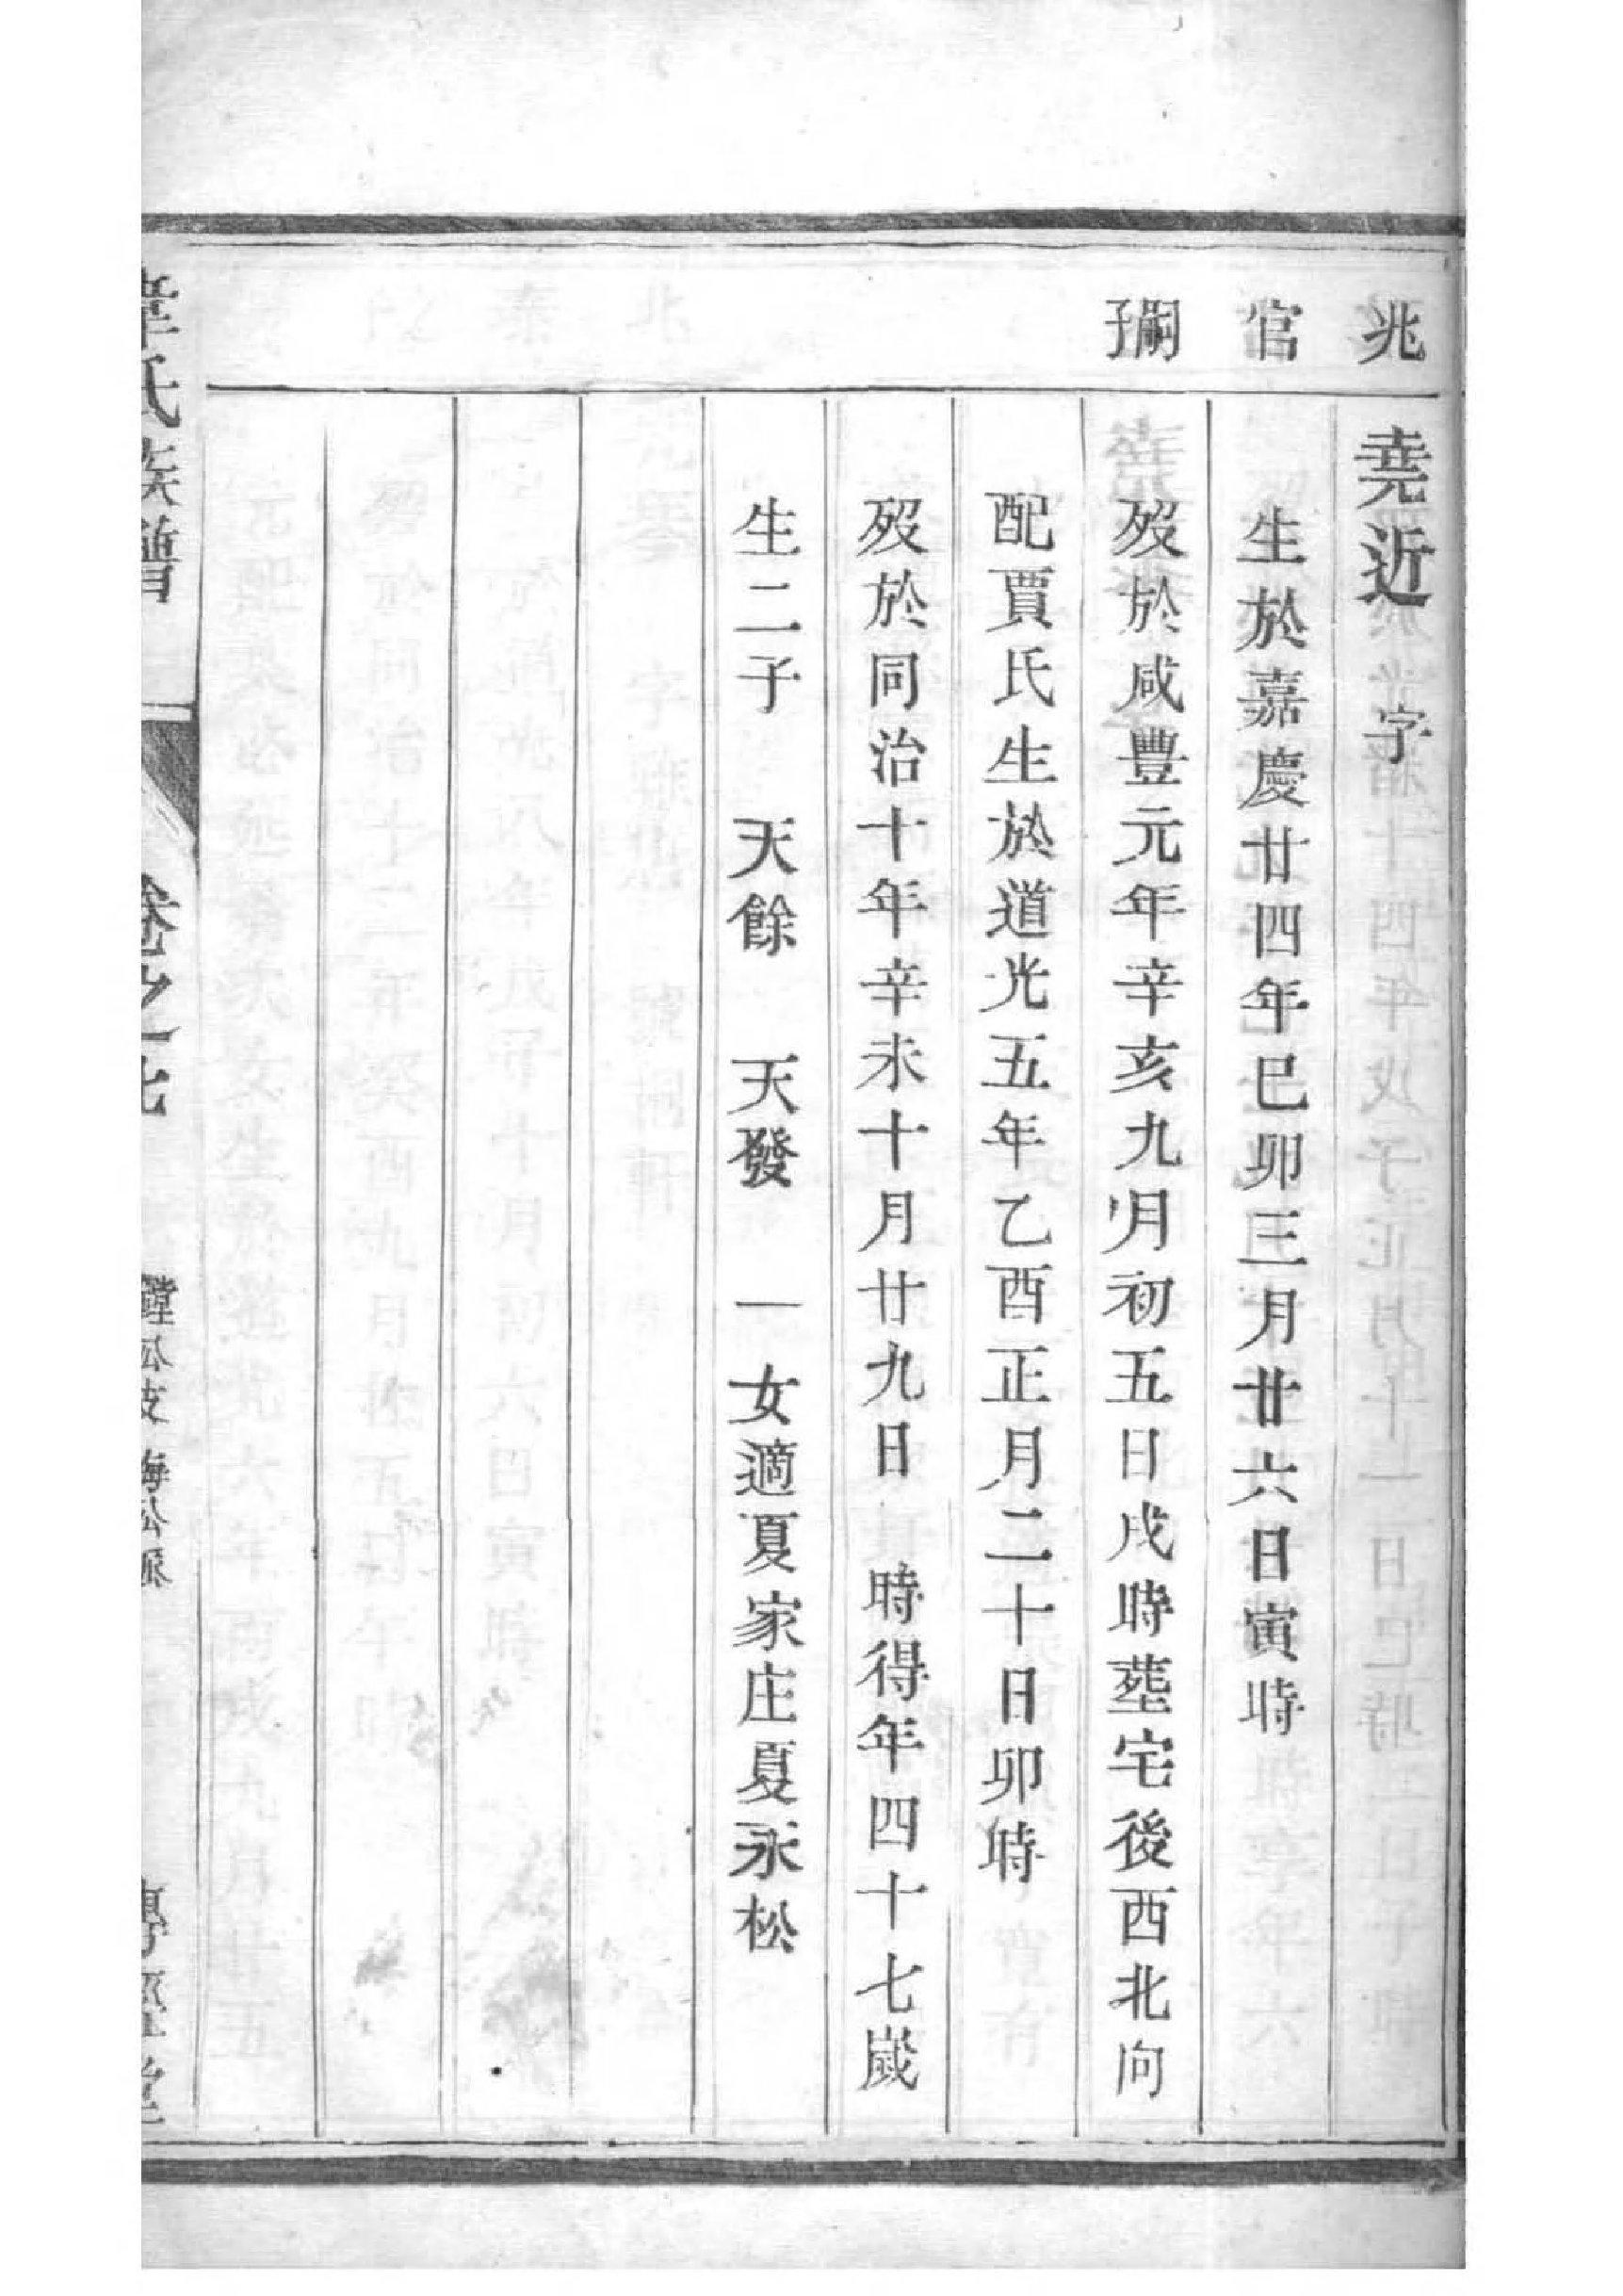 兆
官
嗣子
堯近 字
生於嘉慶廿四年巳卯三月廿六日寅時
歿於咸豐元年辛亥九月初五日戌時塟宅後西北向
配賈氏生於道光五年乙酉正月二十日卯時
歿於同治十年辛未十月廿九日 時得年四十七嵗
生二子 天餘 天發 一女適夏家庄夏永松
韋氏族譜
卷之七
海公派
傳經堂